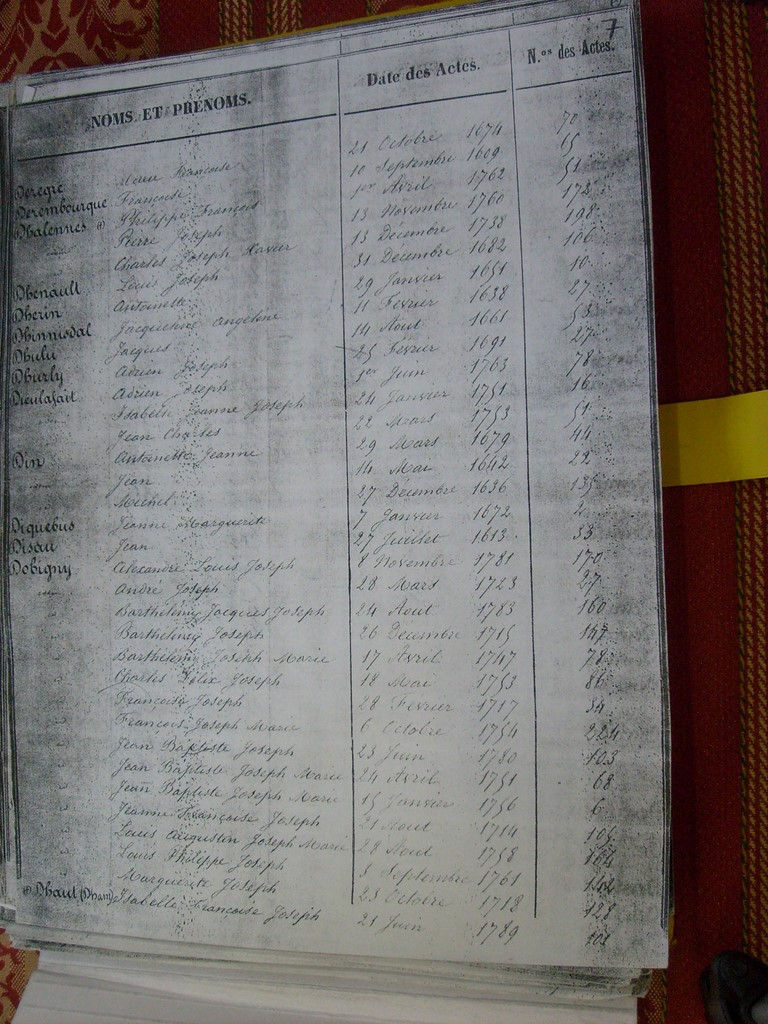 7
NOMS ET PRÉNOMS. Date des Actes. N.os des Actes.
Deregre Marie Françoise 21 Octobre 1674 70
Derembourque Françoise 10 Septembre 1609 65
Dhalennes (1) Philippe François 1er Avril 1762 51
Pierre Joseph 13 Novembre 1760 172
Charles Joseph Xavier 13 Décembre 1738 198
Dhenault Louis Joseph 31 Décembre 1682 106
Dherin Antoinette 29 Janvier 1651 10
Dhinnisdal Jacqueline Angeline 11 Février 1638 27
Dhulu Jacques 14 Aout 1661 53
Dhurly Adrien Joseph 25 Février 1691 27
Dieulafait Adrien Joseph 1er Juin 1763 78
Isabelle Jeanne Joseph 24 Janvier 1751 16
Jean Charles 22 Mars 1753 51
Din Antoinette Jeanne 29 Mars 1679 44
Jean 14 Mai 1642 22
Michel 27 Décembre 1636 135
Diquebus Jeanne Marguerite 7 Janvier 1672 2
Disau Jean 27 Juillet 1613 33
Dobigny Alexandre Louis Joseph 8 Novembre 1781 170
André Joseph 28 Mars 1723 27
Barthélemy Jacques Joseph 24 Aout 1783 160
Barthélemy Joseph 26 Décembre 1715 147
Barthélemy Joseph Marie 17 Avril 1747 78
Charles Félix Joseph 18 Mai 1753 86
François Joseph 28 Février 1717 34
François Joseph Marie 6 Octobre 1754 224
Jean Baptiste Joseph 23 Juin 1780 103
Jean Baptiste Joseph Marie 24 Avril 1751 68
Jean Baptiste Joseph Marie 15 Janvier 1756 6
Jeanne Françoise Joseph 21 Aout 1714 105
Louis Augustin Joseph Marie 22 Aout 1758 164
Louis Philippe Joseph 3 Septembre 1761 142
Marguerite Joseph 23 Octobre 1712 128
(1) Dhaut (Dham) Isabelle Françoise Joseph 21 Juin 1789 101